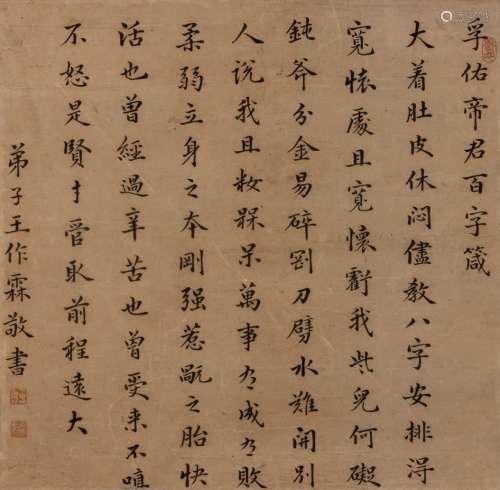 孚佑帝君百字箴
大着肚皮休闷儘教八字安排得
寬懷處且寬懷虧我些兒何礙
鈍斧分金易碎劉刀劈水難開別
人說我且粧獃呆萬事有成有敗
柔弱立身之本剛强惹䶧之胎快
活也曾經過辛苦也曾受来不嗔
不怒是賢才管取前程遠大
弟子王作霖敬書